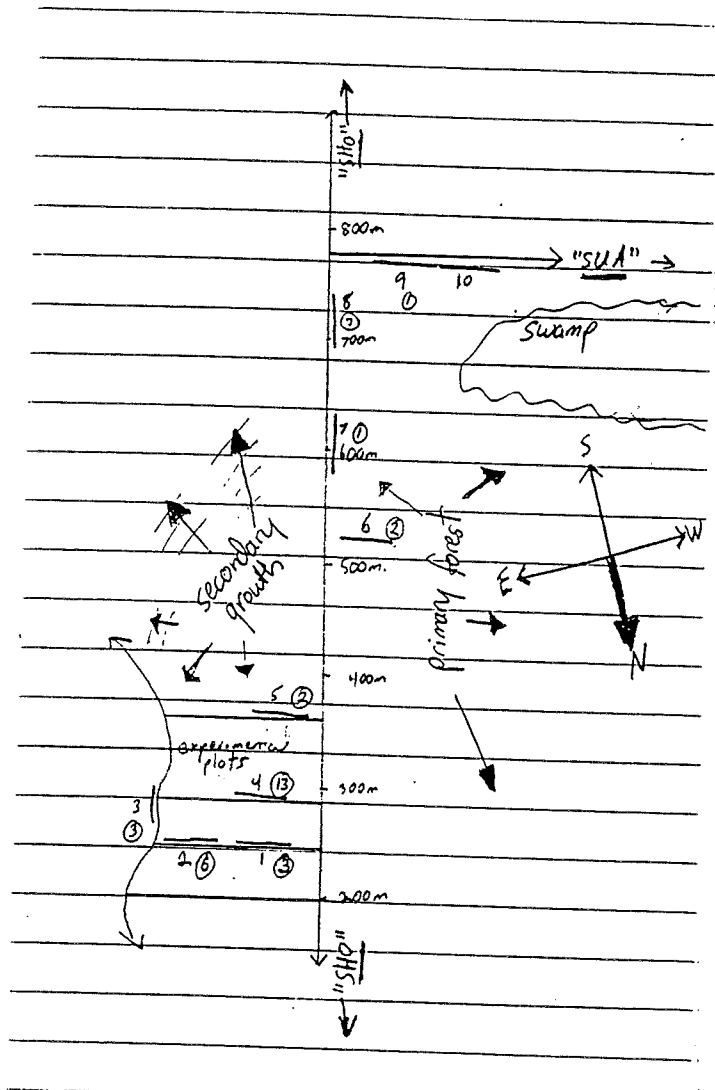 "SHO"
800m
"SUA"
9 10
①
8
②
700m
swamp
7 ①
600m
S
6 ②
W
500m.
E
secondary
growth
primary forest
N
400m
5 ②
experimental
plots
4 ⑬
300m
3
③
2 ⑥ 1 ③
200m
"SHO"